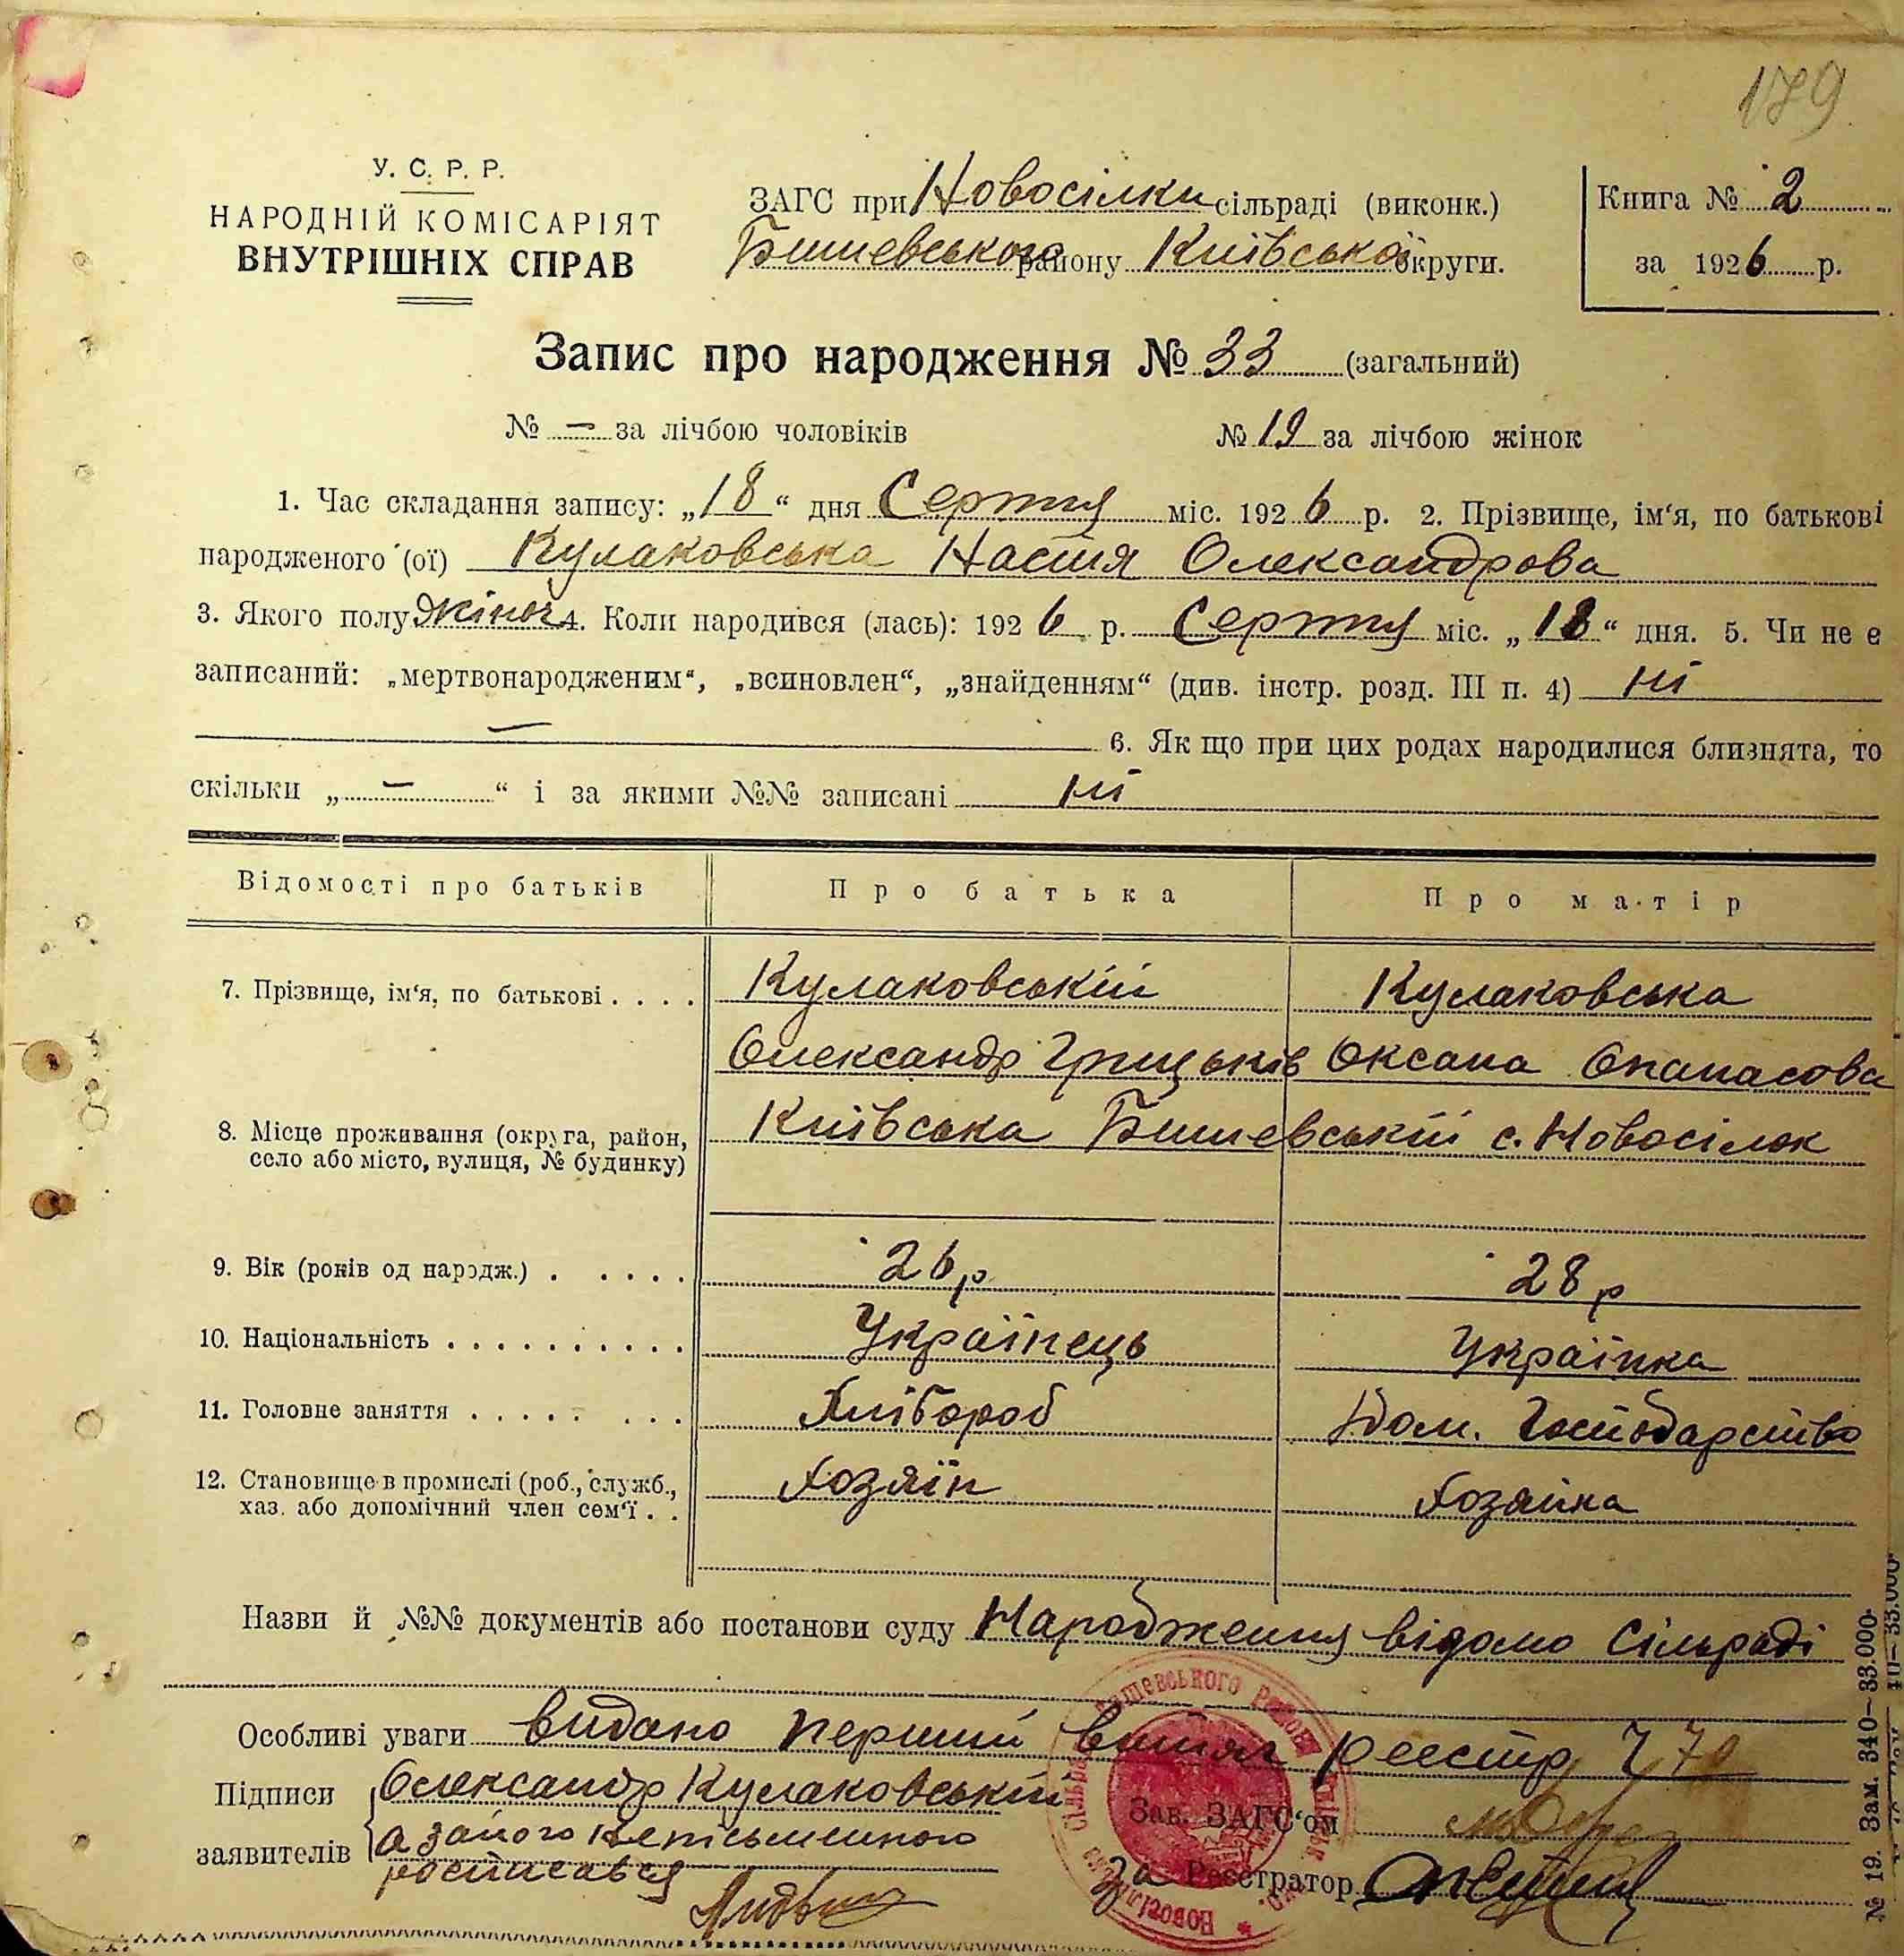 179
У. С. Р. Р.
НАРОДНІЙ КОМІСАРІЯТ
ВНУТРІШНІХ СПРАВ
ЗАГС при Новосілки сільраді (виконк.)
Бишевського району Київської округи.
Книга № 2
за 1926 р.
Запис про народження № 33 (загальний)
№ — за лічбою чоловіків № 19 за лічбою жінок
1. Час складання запису: „18“ дня Серпня міс. 1926 р. 2. Прізвище, ім‘я, по батькові
народженого (ої) Кулаковська Настя Олександрова
3. Якого полу жіноч 4. Коли народився (лась): 1926 р. Серпня міс. „18“ дня. 5. Чи не є
записаний: „мертвонародженим“, „всиновлен“, „знайденням“ (див. інстр. розд. III п. 4) ні
— 6. Як що при цих родах народилися близнята, то
скільки „—“ і за якими №№ записані ні
Відомості про батьків Про батька Про матір
7. Прізвище, ім‘я, по батькові . . . . Кулаковській Кулаковська
Олександр Грицьків Оксана Опанасова
8. Місце проживання (округа, район, село або місто, вулиця, № будинку) Київська Бишевській с. Новосілок
9. Вік (років од народж.) . . . . . 26 р 28 р
10. Національність . . . . . . . . . . Українець Українка
11. Головне заняття . . . . . . . . Хлібороб Дом. Господарство
12. Становище в промислі (роб., служб., Хозяїн Хозяйка
хаз. або допомічний член сем‘ї . .
Назви й №№ документів або постанови суду Народження відомо Сільраді
Особливі уваги видано перший витяг реєстр
Підписи Олександр Кулаковській
заявителів а за його неписьменного
росписався
Зав. ЗАГС‘ом
за Реєстратор
№ 19. Зам. 340—33.000